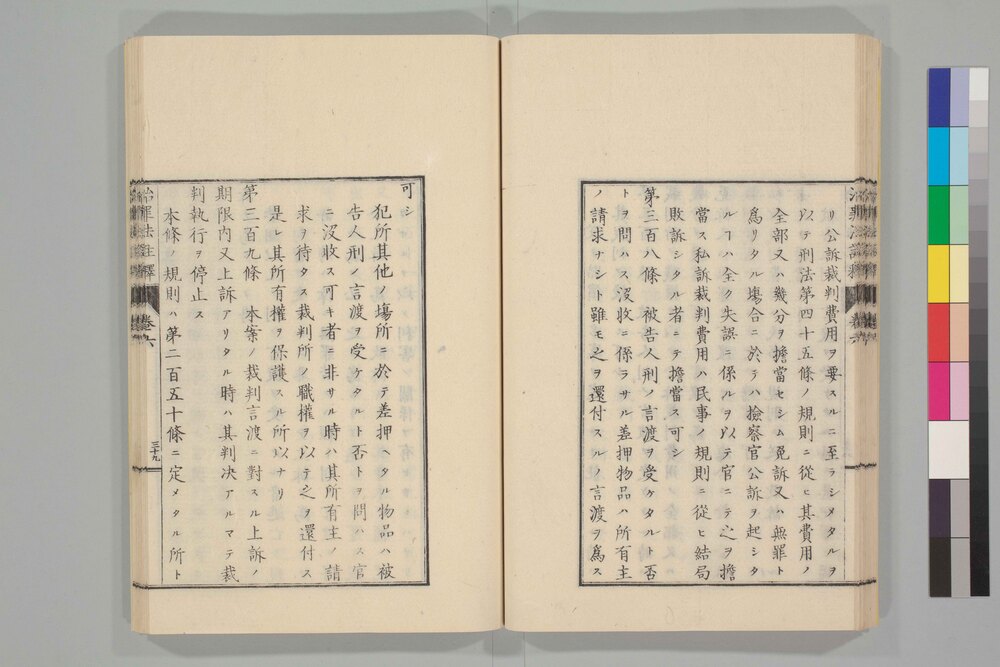 リ公訴裁判費用ヲ要スルニ至ラシメタルヲ
以テ刑法第四十五條ノ規則ニ從ヒ其費用ノ
全部又ハ幾分ヲ擔當セシム免訴又ハ無罪ト
爲リタル塲合ニ於テハ撿察官公訴ヲ起シタ
ルヿハ全ク失誤ニ係ルヲ以テ官ニテ之ヲ擔
當ス私訴裁判費用ハ民事ノ規則ニ從ヒ結局
敗訴シタル者ニテ擔當ス可シ
第三百八條 被告人刑ノ言渡ヲ受ケタルト否
トヲ問ハス沒收ニ係ラサル差押物品ハ所有主
ノ請求ナシト雖モ之ヲ還付スルノ言渡ヲ爲ス
可シ
犯所其他ノ塲所ニ於テ差押ヘタル物品ハ被
告人刑ノ言渡ヲ受ケタルト否トヲ問ハス官
ニ沒收ス可キ者ニ非サル時ハ其所有主ノ請
求ヲ待タス裁判所ノ職權ヲ以テ之ヲ還付ス
是レ其所有權ヲ保護スル所以ナリ
第三百九條 本案ノ裁判言渡ニ對スル上訴ノ
期限內又上訴アリタル時ハ其判决アルマテ裁
判執行ヲ停止ス
本條ノ規則ハ第二百五十條ニ定メタル所ト
治罪法註釋 卷六
三十九